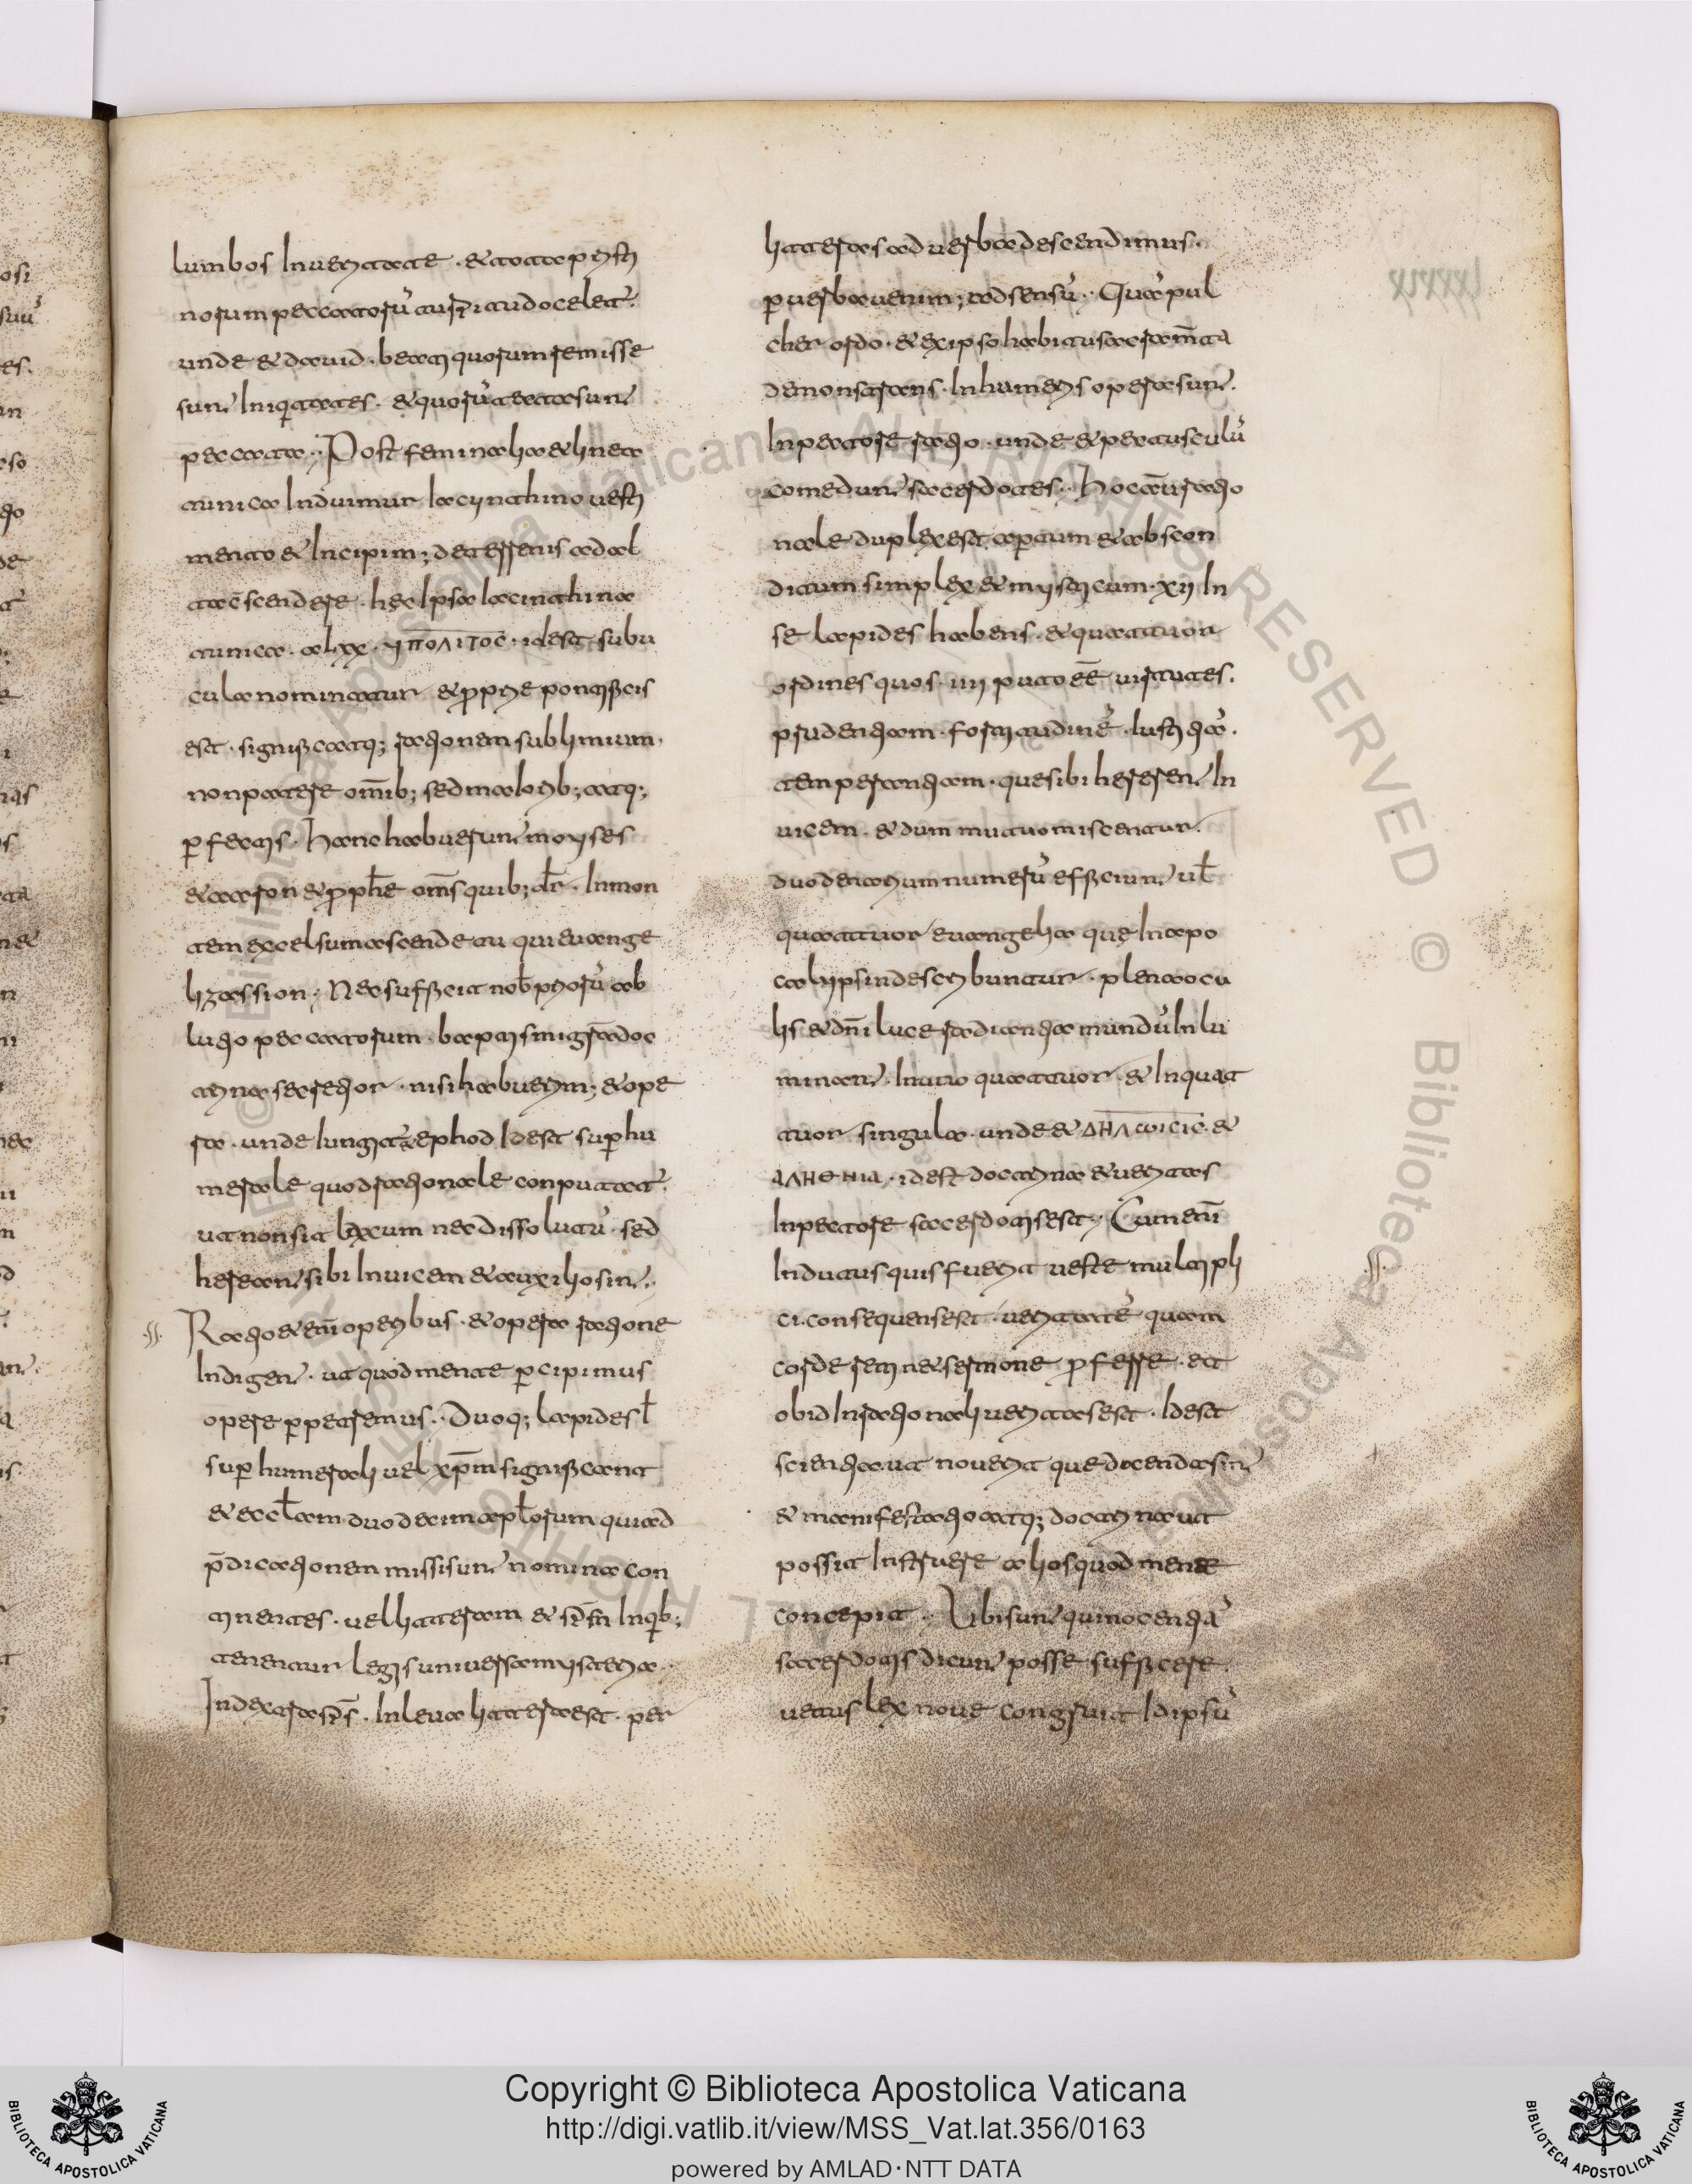 lumbos inueritate · & tota priorum
unde & dauid · beati quorum remisse
sunt iniquitates · & quorũ tecta sunt
peccata ·· Post feminalia & linea
tunica induimur iacynthino uesti
mento & incipim; deterrenis ad al
ta c̄scendere · hec ipsa iacinthina
tunica · a lxx · ΥΠΟΛΙΤΟC · idest subu
cula nominatur & p̄prie pontificis
est · significatq; rationem sublimium ·
non patere om̄ib; sed maiorib; atq;
ꝑfectis · Hanc habuerunt moyses
& aaron & p̄ph&e om̄s quib; dr̄ · In mon
tem excelsum ascende tu qui euange
lizas sion · Nec sufficit nob̄ priorũ ab
lutio peccatorum · baptismi gr̄a doc
trina secretior · nisi habuerim; & ope
ra · unde iungit̃ & ephod idest suꝑhu
merale quod rationale conputat̃ ·
ut non sit laxum nec dissolutũ · sed
hereant sibi inuicem & auxilio sint ·
Ratio & eni operibus · & opera ratione
indigent · ut quod mente ꝑcipimus
opere ꝑpetremus ·· Duoq; lapides ł
suꝑhumerali uel xp̄m significant
& eccl̄am duodecim apl̄orum qui ad
p̄dicationem missi sunt nomina con
tinentes · uel litteram & sp̄m inqb;
tenentur legis uniuersa mysteria ··
Indextra sp̄s · Inleua littera est · per
litteras ad uerba descendimus ·
ꝑ uerba uenim; ad sensũ ·· Quã pul
cher ordo · & ex ipso habitu sacram̄ta
demonstrans · Inhumeris opera sunt ·
Inpectore ratio · unde & pectusculũ
comedunt sacerdotes ·· Hoc aũ ratio
nale duplex est aꝑtum & abscon
ditum simplex & mysticum · xii in
se lapides habens · & quattuor
ordines quos · iiii puto eē uirtutes ·
prudentiam · fortitudinẽ · iustitiã ·
temperantiam · que sibi herent in
uicem · & dum mutuo miscentur ·
duodenarium numerũ efficiunt uł
quattuor euangelia que inapo
calipsin describuntur · plena ocu
lis & dn̄i luce radiantia mundũ inlu
minant · Inuno quattuor · & inquat
tuor singula · unde & ΔΗΛωΙCΙC · &
ΑΛΗΘΗΙΑ · idest doctrina & ueritas
Inpectore sacerdotis est ·· Cum eni
Indutus quis fuerit ueste multipli
ci · consequens est · ueritatẽ quam
corde retin& sermone ꝓferre · et
ob id inrationali ueritas est · idest
scientia · ut nouerit que docenda sint
& manifestatio atq; doctrina ut
possit instruere alios quod mente
concepit ·· Ubi sunt qui innocentiã
sacerdotis dicunt posse sufficere ·
uetus lex noue congruit idipsũ
Copyright © Biblioteca Apostolica Vaticana
http://digi.vatlib.it/view/MSS_Vat.lat.356/0163
powered by AMLAD·NTT DATA